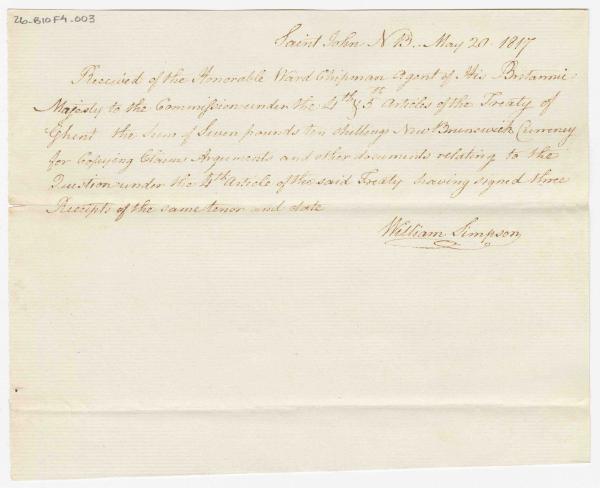 26-B10F4-003
Saint John N B. May 20. 1817
Received of the Honorable Ward Chipman Agent of His Britannic
Majesty to the Commission under the 4th & 5th Articles of the Treaty of
Ghent the Sum of Seven pounds ten shillings New Brunswick Currency
for Copying Claims Arguments and other documents relating to the
Question under the 4th Article of the said Treaty having signed three
Receipts of the same tenor and date
William Simpson